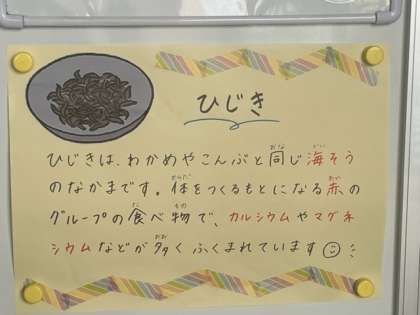 ひじき
ひじきは、わかめやこんぶと同じ海そう
のなかまです。体をつくるもとになる赤の
グループの食べ物で、カルシウムやマグネ
シウムなどが多くふくまれています